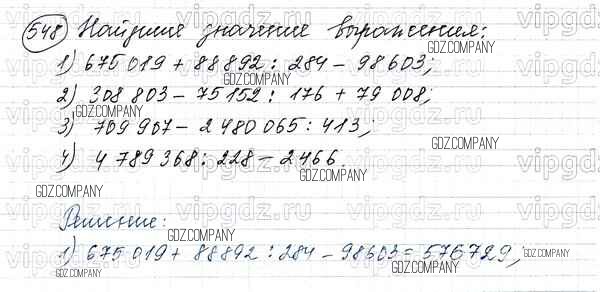 548 Найдите значение выражения:
1) 675 019 + 88892 : 284 - 98603;
2) 308 803 - 75 152 : 176 + 79 008;
3) 709 907 - 2 480 065 : 413;
4) 4 789 368 : 228 - 2466.
Решение:
1) 675 019 + 88892 : 284 - 98603 = 576729;
GDZ.COMPANY
vipgdz.ru